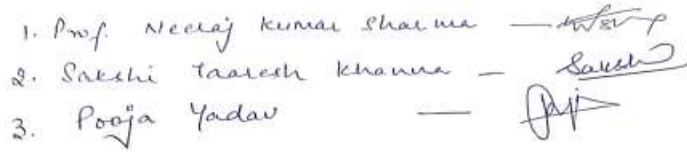 1. Prof. Neeraj Kumar Sharma —
2. Sakshi Taaresh Khanna — Sakshi
3. Pooja Yadav —